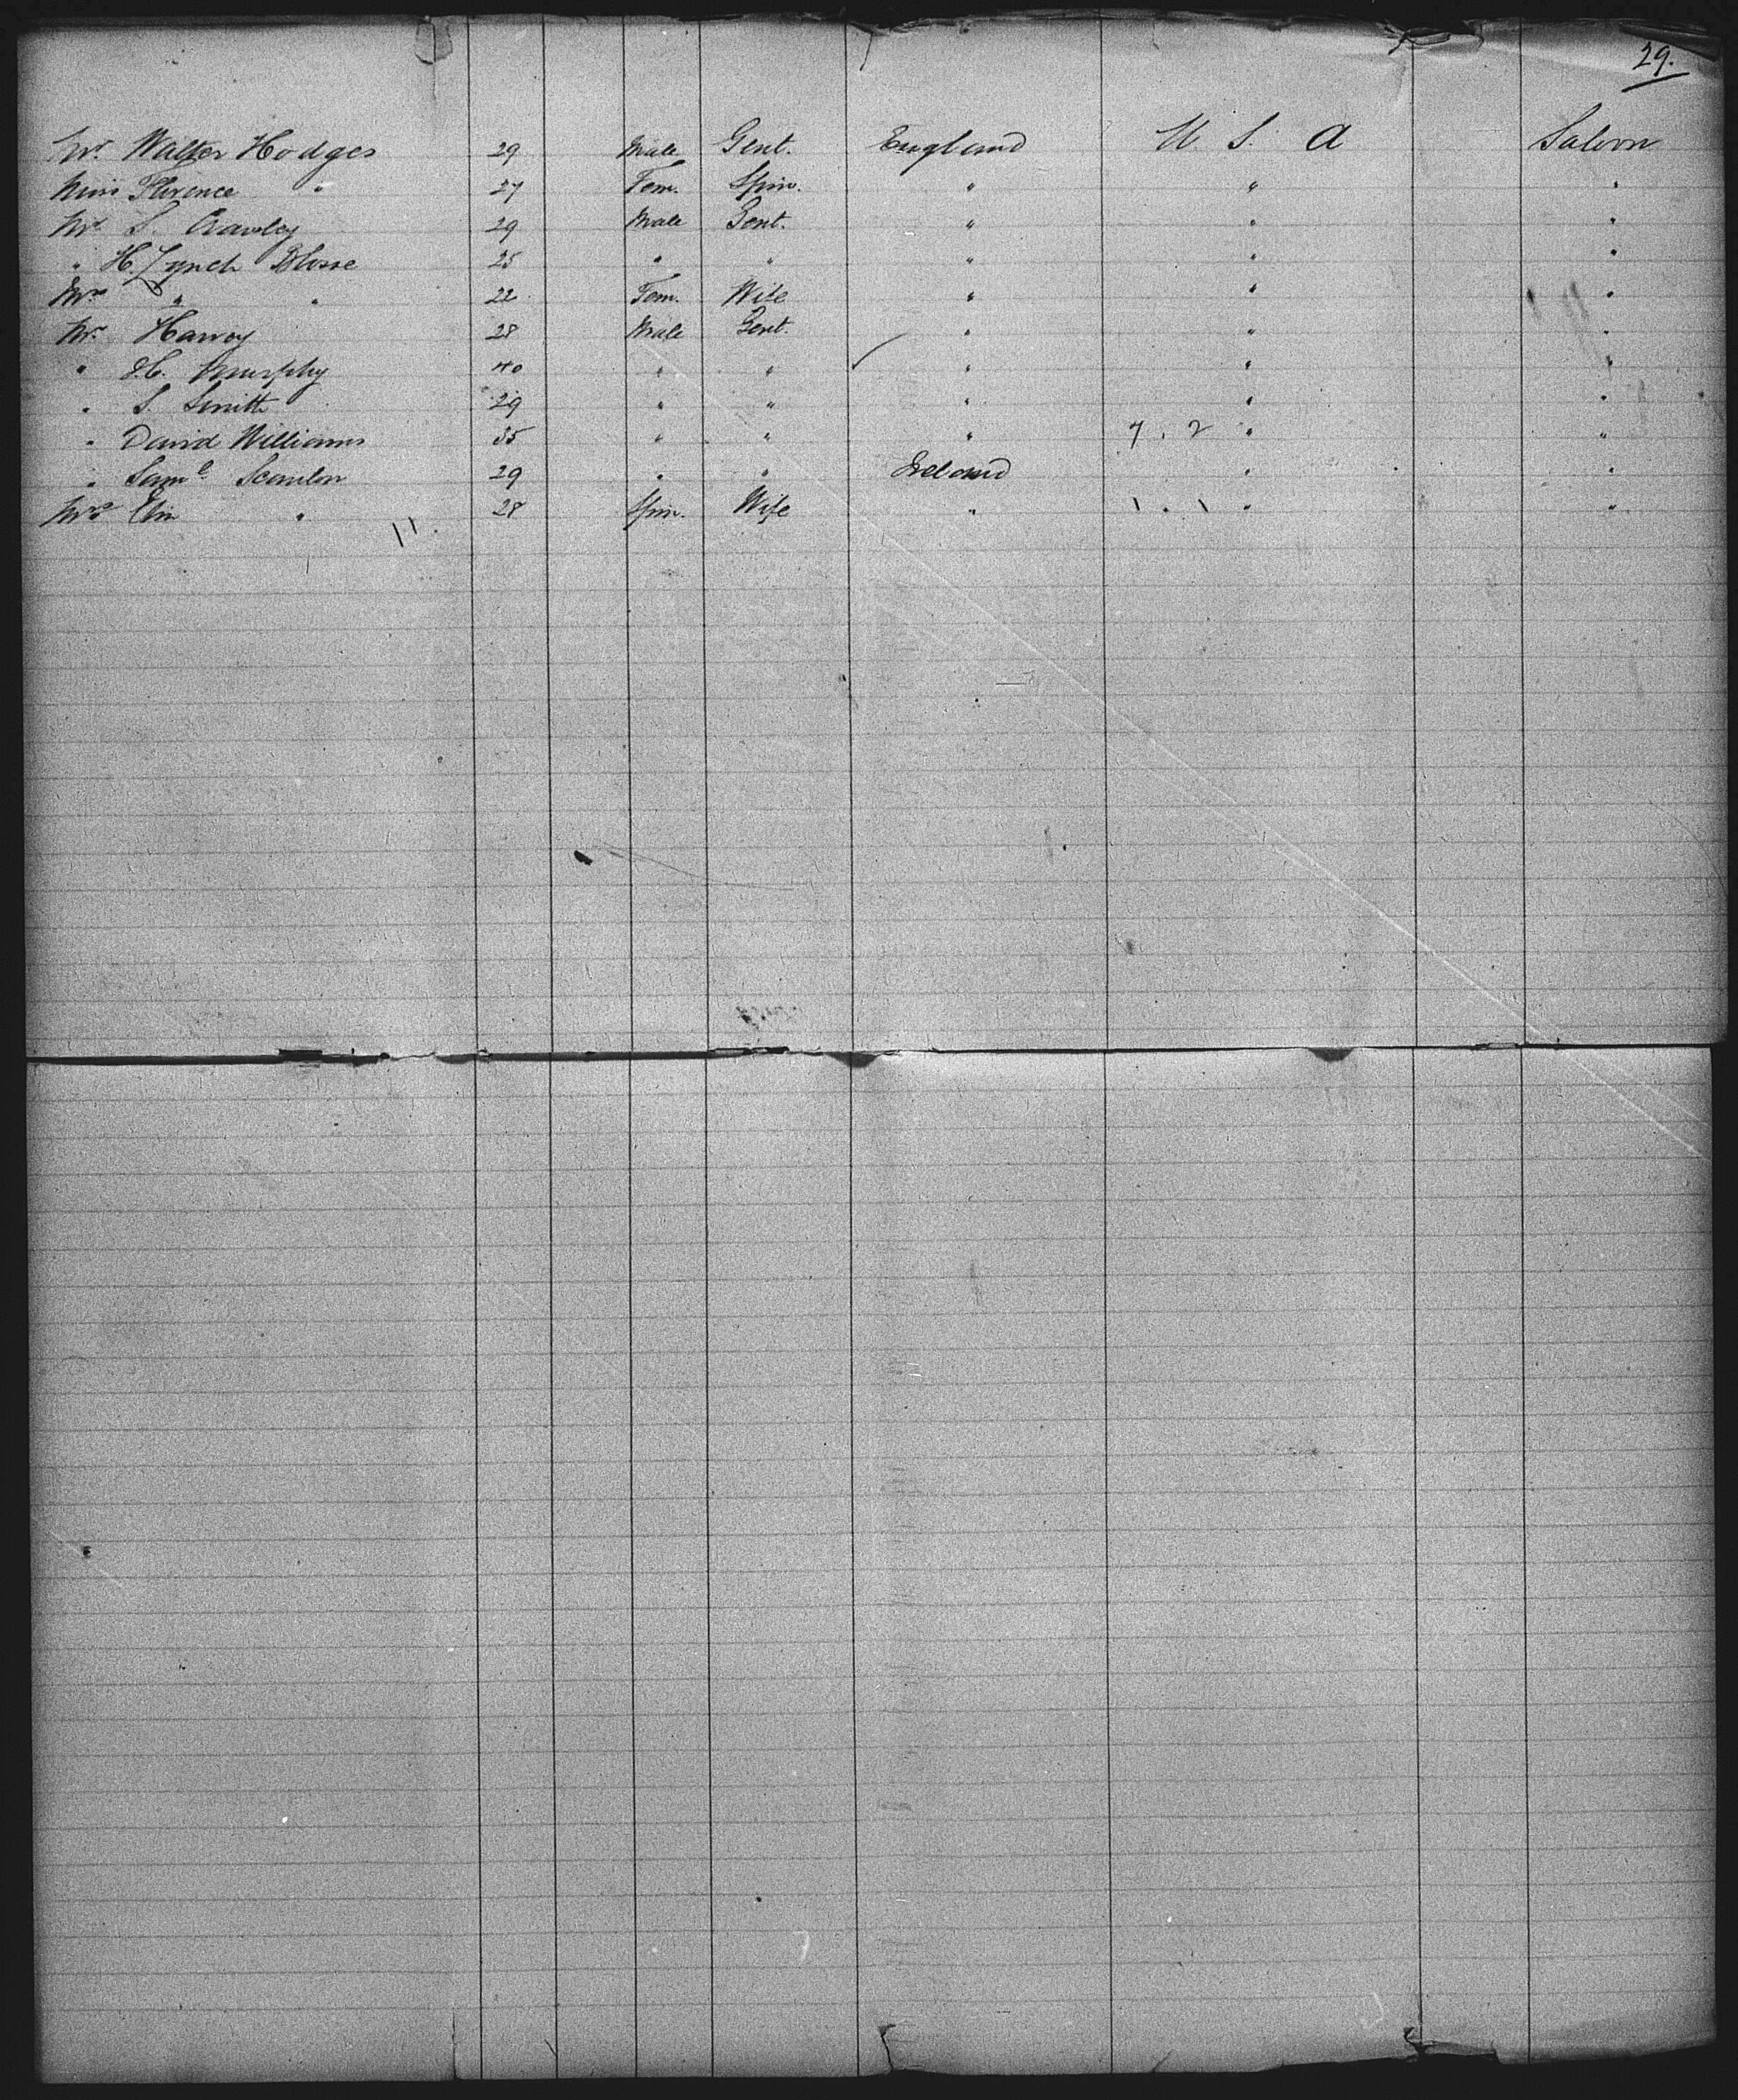 29.
Mr. Walter Hodges 29 Male Gent. England U. S. A Saloon
Miss Florence " 27 Fem. Spin. " " "
Mr. S. Crawley 29 Male Gent. " " "
" H. Lynch Blosse 25 " " " " "
Mrs " " 22 Fem. Wife " " "
Mr. Harvey 28 Male Gent. " " "
" Murphy 40 " " ✓ " " "
" S. Smith 29 " " " " "
" David Williams 35 " " " 7 . 2 " "
" Saml. Scanlon 29 " " Ireland " "
Mrs " 28 Spin. Wife " 1 . 1 " "
11.